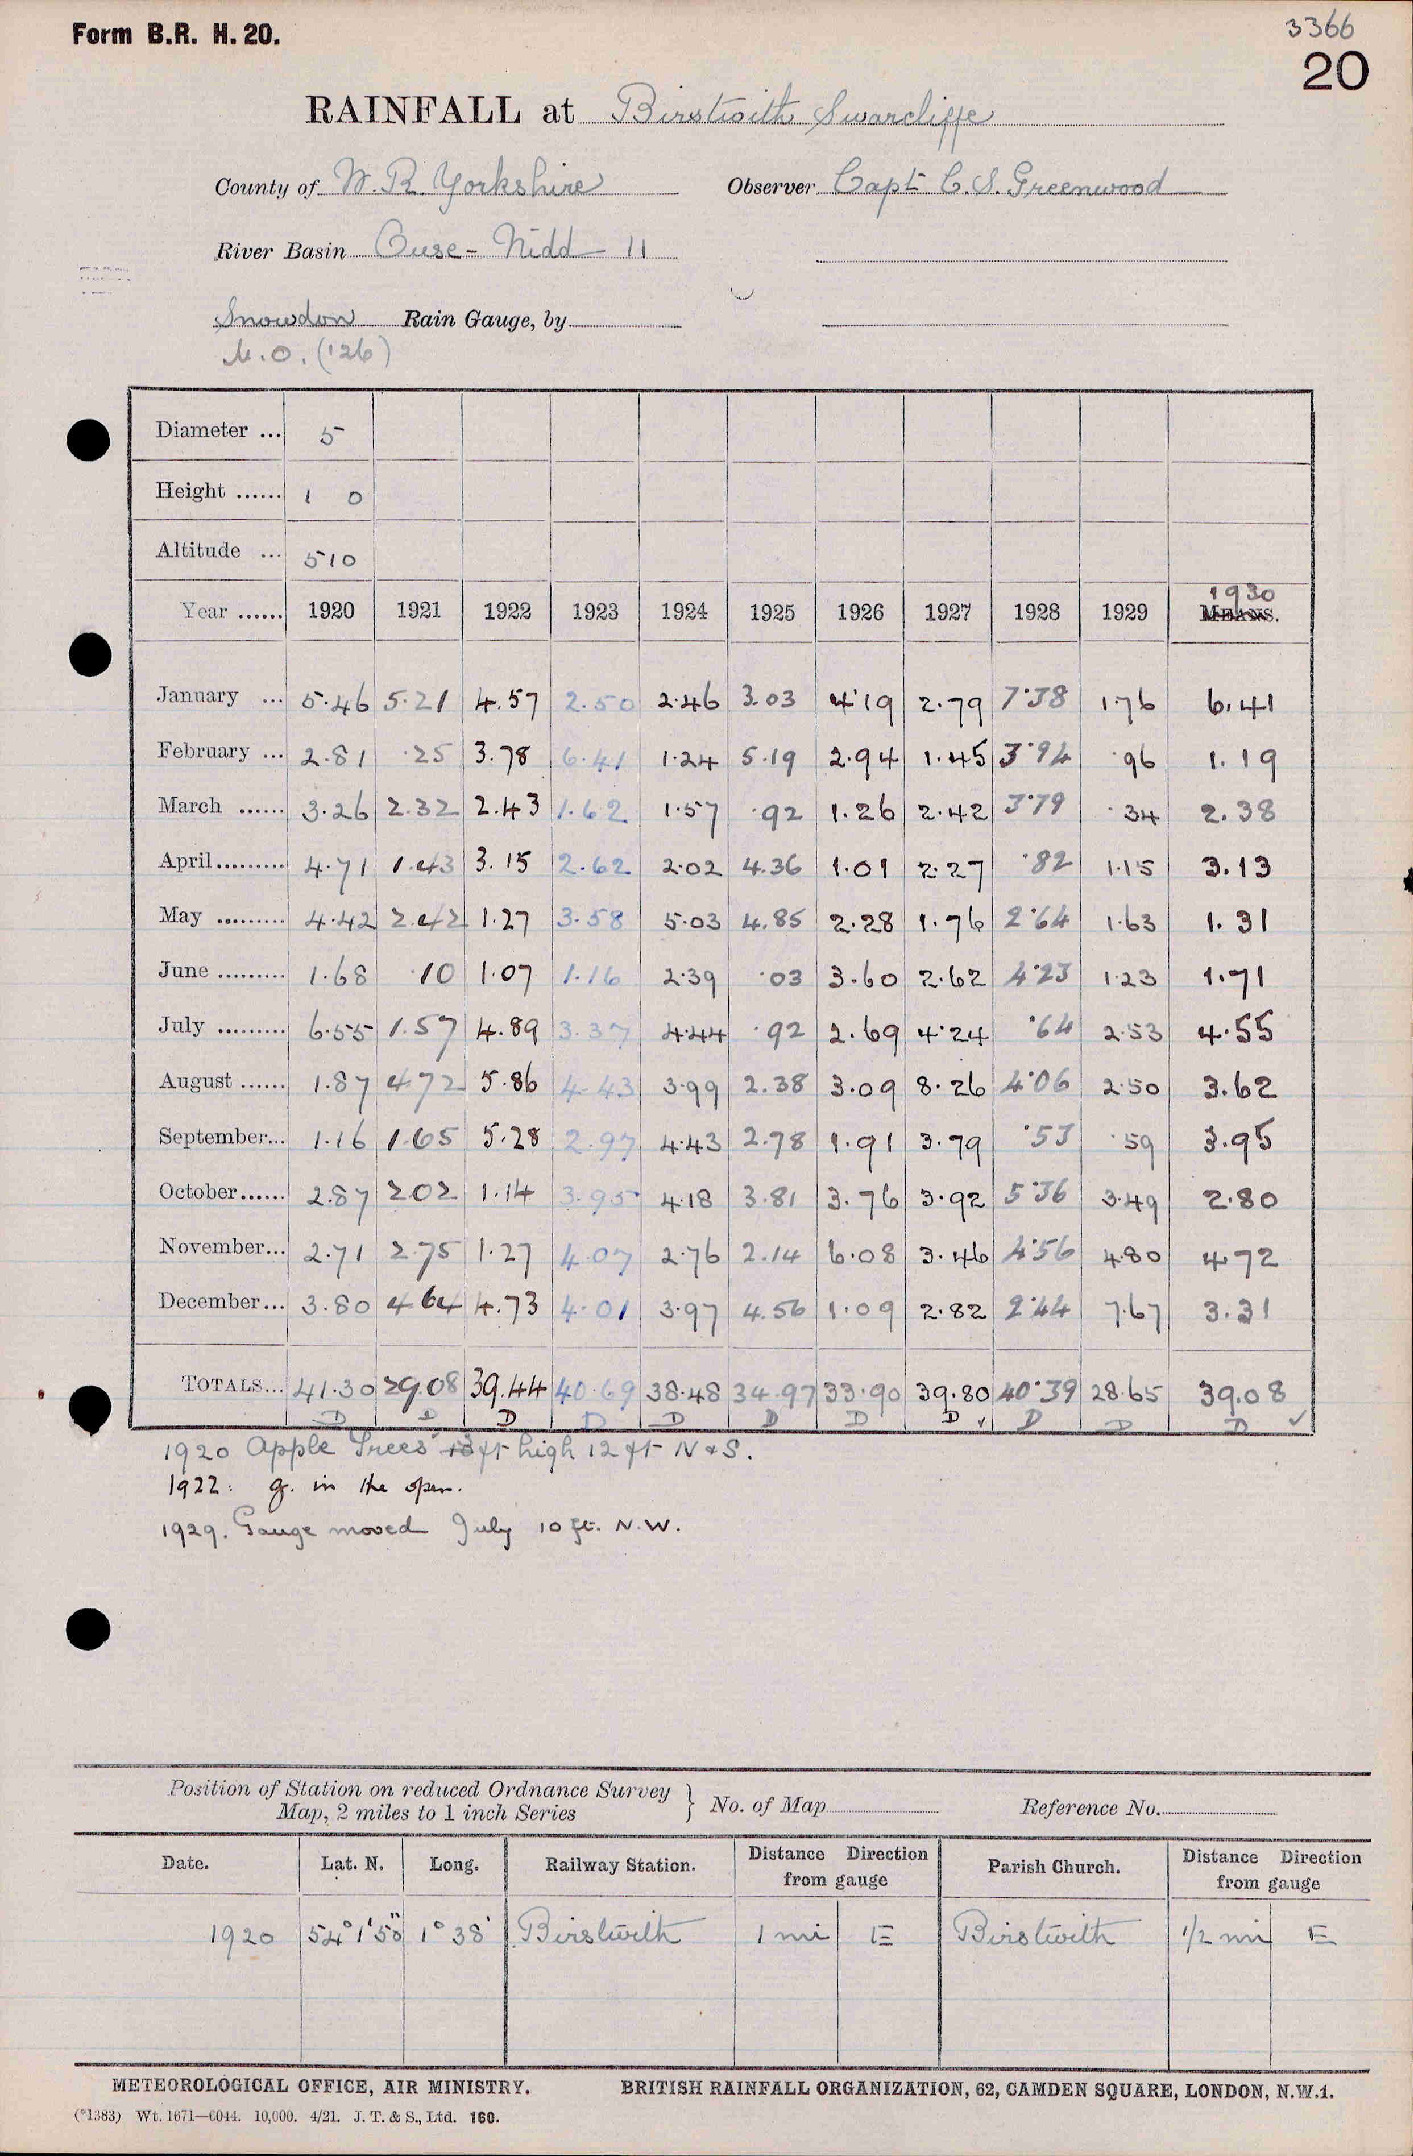 Form B.R. H. 20.
3366
20
RAINFALL at Birstwith Swarcliffe
County of W. R. Yorkshire Observer Capt C. S. Greenwood
River Basin Ouse - Nidd 11
Snowdon Rain Gauge, by
M.O. (126)
Diameter ... 5
Height ...... 1 0
Altitude ... 510
1930
Year ...... 1920 1921 1922 1923 1924 1925 1926 1927 1928 1929 MEANS.
January ... 5.46 5.21 4.57 2.50 2.46 3.03 4.19 2.79 7.38 1.76 6.41
February ... 2.81 .25 3.78 6.41 1.24 5.19 2.94 1.45 3.94 .96 1.19
March ...... 3.26 2.32 2.43 1.62 1.57 .92 1.26 2.42 3.79 .34 2.38
April ......... 4.71 1.43 3.15 2.62 2.02 4.36 1.01 2.27 .82 1.15 3.13
May ......... 4.42 2.42 1.27 3.58 5.03 4.85 2.28 1.76 2.64 1.63 1.31
June ......... 1.68 .10 1.07 1.16 2.39 .03 3.60 2.62 4.23 1.23 1.71
July ......... 6.55 1.57 4.89 3.37 4.44 .92 2.69 4.24 .64 2.53 4.55
August ...... 1.87 4.72 5.86 4.43 3.99 2.38 3.09 8.26 4.06 2.50 3.62
September... 1.16 1.65 5.28 2.97 4.43 2.78 1.91 3.79 .53 .59 3.95
October...... 2.87 2.02 1.14 3.95 4.18 3.81 3.76 3.92 5.36 3.49 2.80
November... 2.71 2.75 1.27 4.07 2.76 2.14 6.08 3.46 4.56 4.80 4.72
December... 3.80 4.64 4.73 4.01 3.97 4.56 1.09 2.82 2.44 7.67 3.31
TOTALS... 41.30 29.08 39.44 40.69 38.48 34.97 33.90 39.80 40.39 28.65 39.08
D D D D D D D D ✓ D D D ✓
1920 Apple Trees 13 ft high 12 ft N & S.
1922: g. in the open.
1929. Gauge moved July 10 ft. N.W.
Position of Station on reduced Ordnance Survey
Map, 2 miles to 1 inch Series } No. of Map Reference No.
Date. Lat. N. Long. Railway Station. Distance Direction from gauge Parish Church. Distance Direction from gauge
1920 54° 1' 50" 1° 38' Birstwith 1 mi E Birstwith 1/2 mi E
METEOROLOGICAL OFFICE, AIR MINISTRY. BRITISH RAINFALL ORGANIZATION, 62, CAMDEN SQUARE, LONDON, N.W.1.
(*1383) Wt. 1671—6044. 10,000. 4/21. J. T. & S., Ltd. 160.